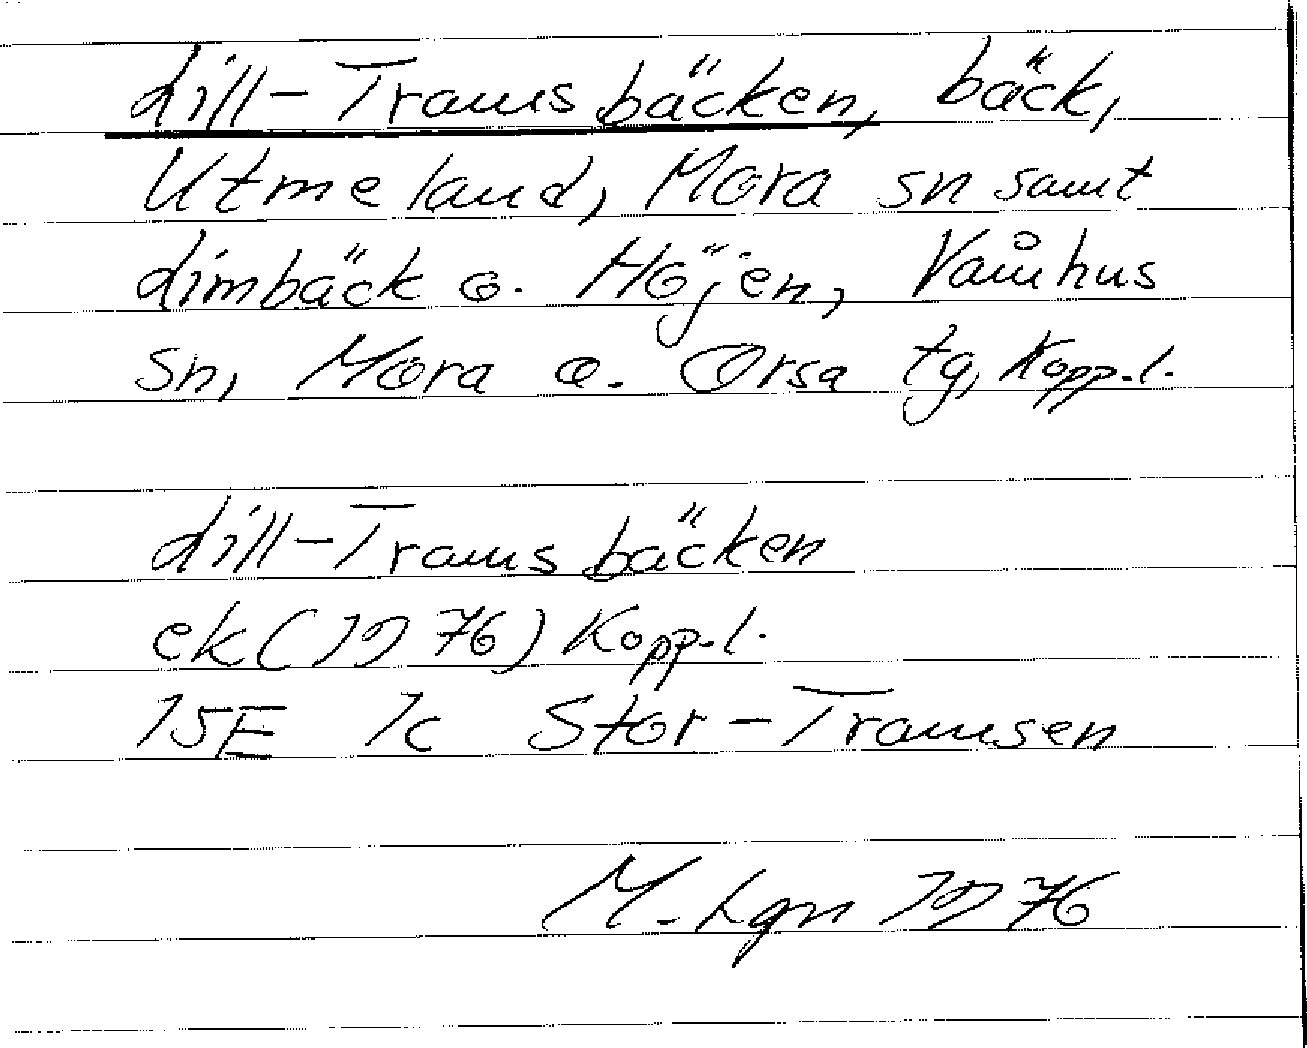 Lill-Tramsbäcken, bäck,
Utmeland, Mora sn samt
Limbäck o. Höjen, Våmhus
sn, Mora o. Orsa tg, Kopp.l.
Lill-Tramsbäcken
ek (1976) Kopp.l.
15E 1c Stor-Tramsen
M. Lgn 1976